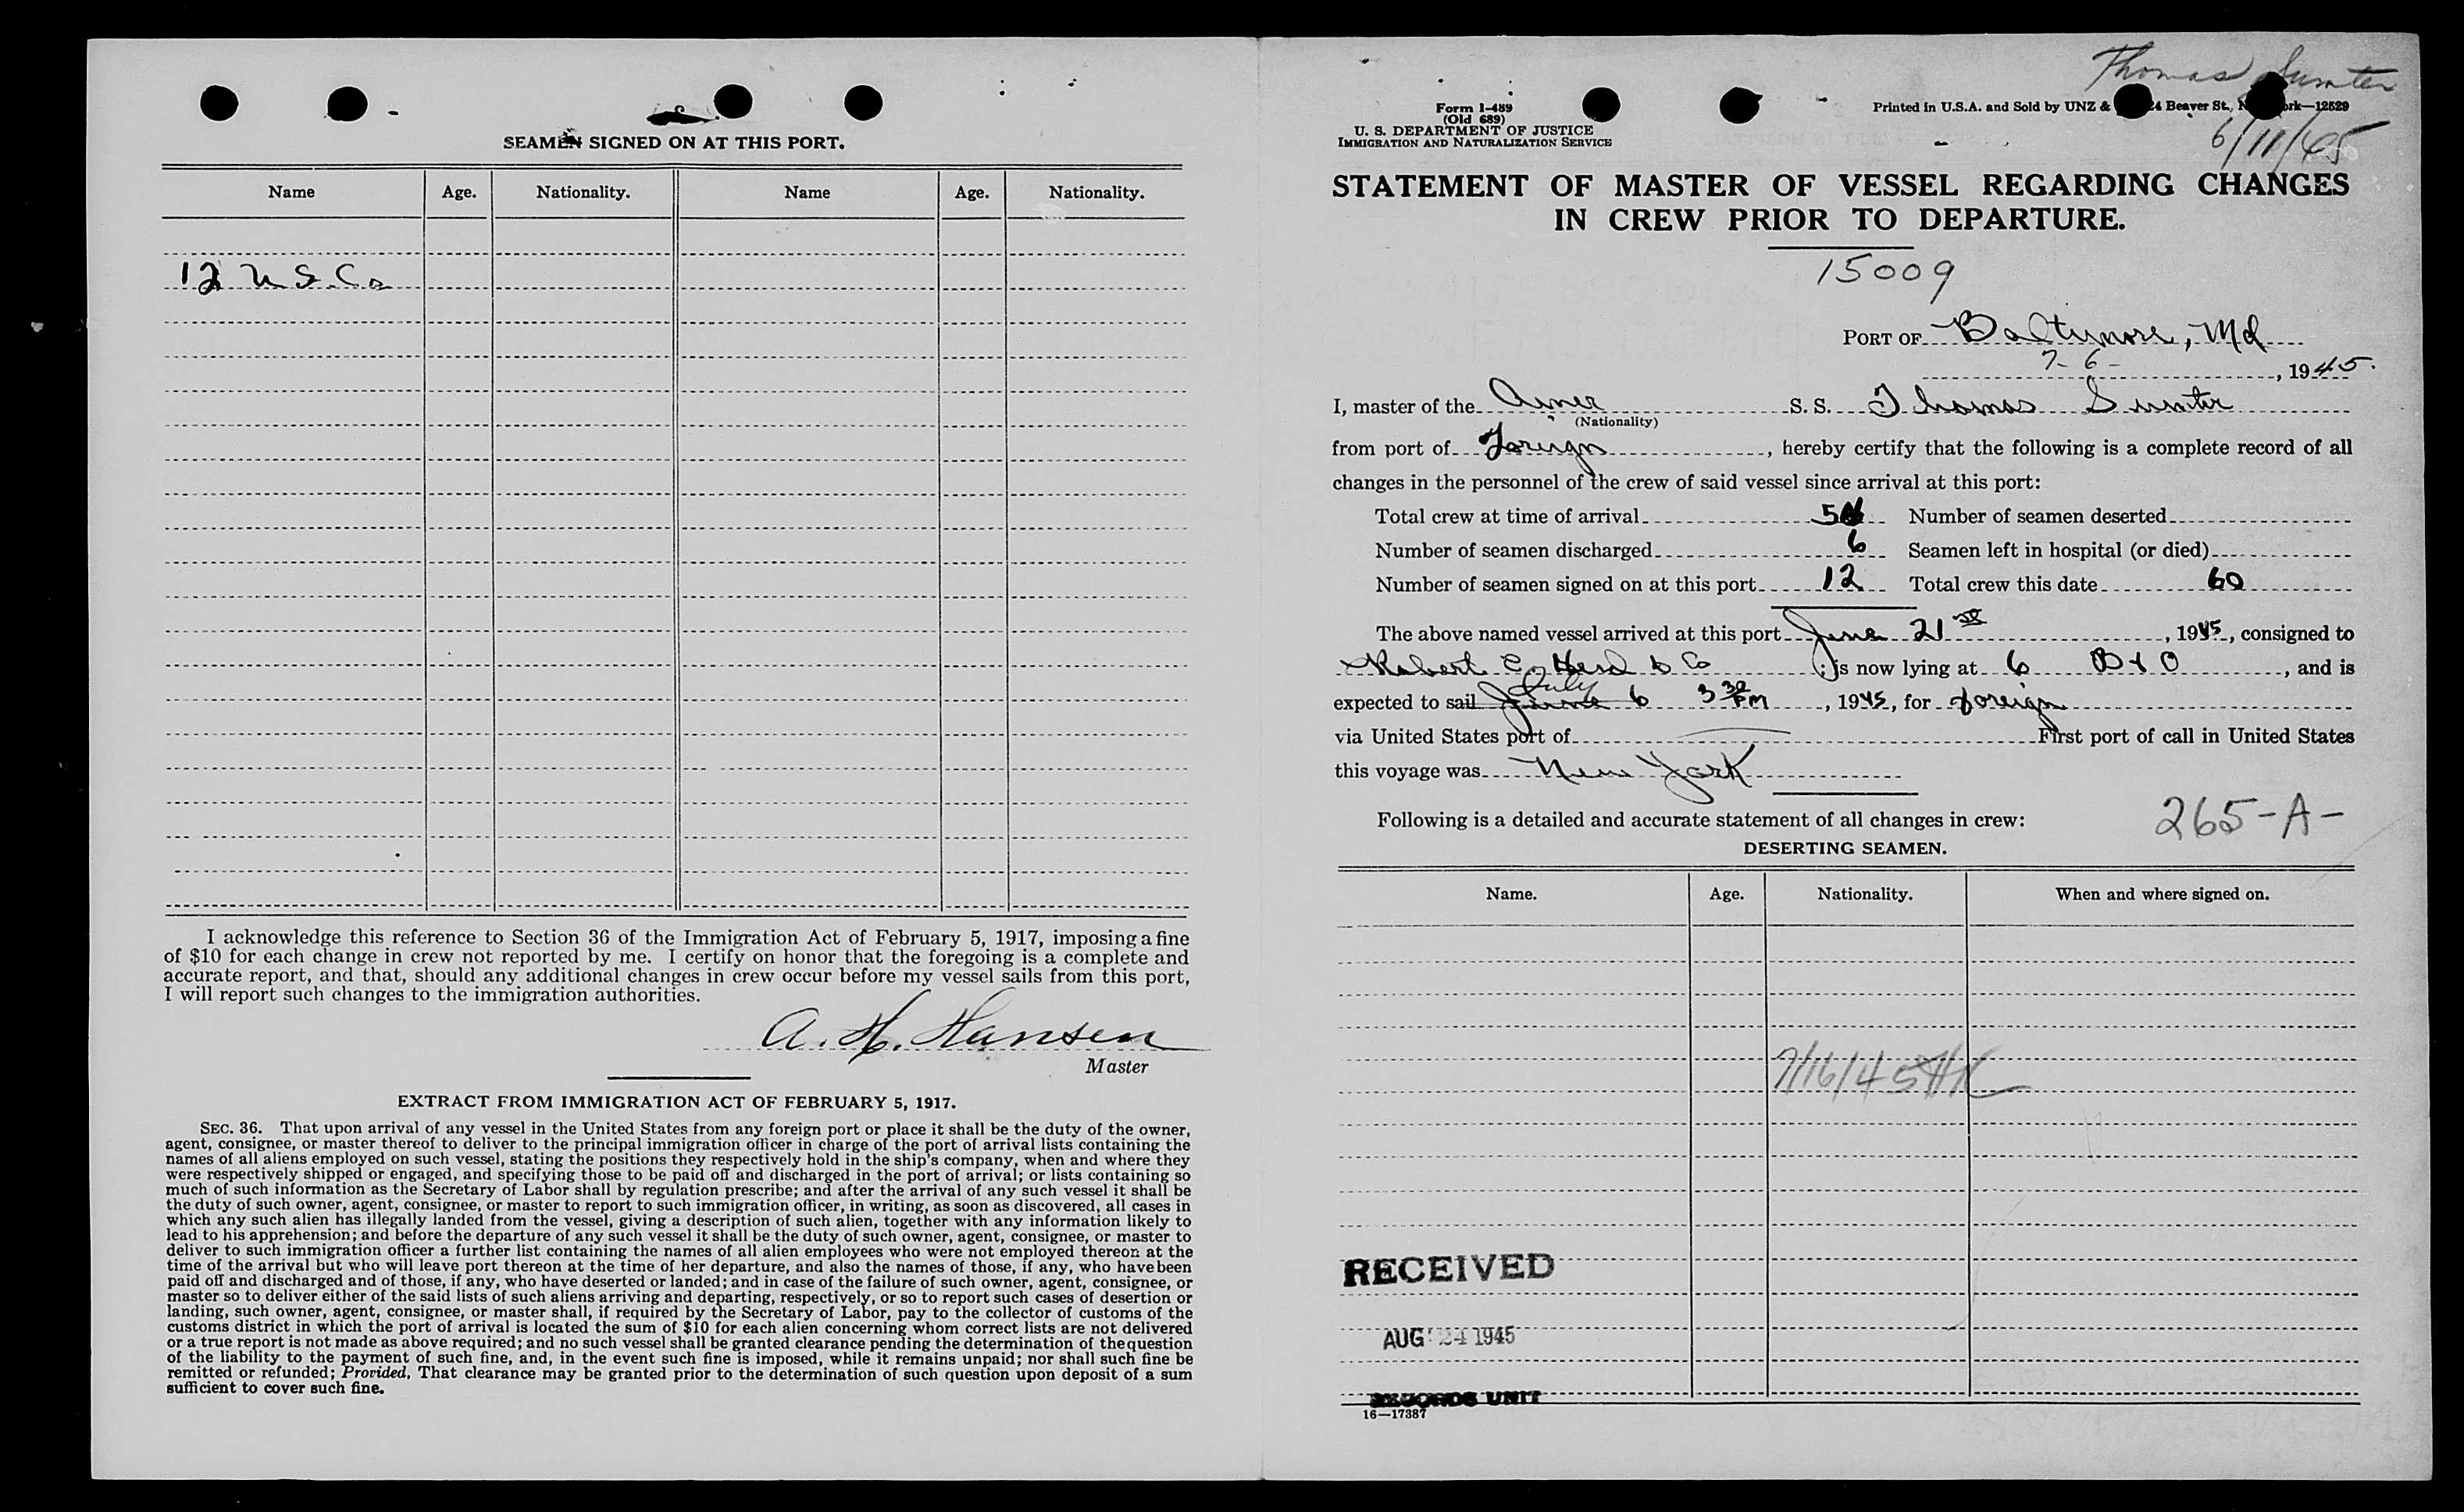 SEAMEN SIGNED ON AT THIS PORT.
Name Age. Nationality. Name Age. Nationality.
12 U S. Cs
I acknowledge this reference to Section 36 of the Immigration Act of February 5, 1917, imposing a fine
of $10 for each change in crew not reported by me. I certify on honor that the foregoing is a complete and
accurate report, and that, should any additional changes in crew occur before my vessel sails from this port,
I will report such changes to the immigration authorities.
A. H. Hansen
Master
EXTRACT FROM IMMIGRATION ACT OF FEBRUARY 5, 1917.
SEC. 36. That upon arrival of any vessel in the United States from any foreign port or place it shall be the duty of the owner,
agent, consignee, or master thereof to deliver to the principal immigration officer in charge of the port of arrival lists containing the
names of all aliens employed on such vessel, stating the positions they respectively hold in the ship's company, when and where they
were respectively shipped or engaged, and specifying those to be paid off and discharged in the port of arrival; or lists containing so
much of such information as the Secretary of Labor shall by regulation prescribe; and after the arrival of any such vessel it shall be
the duty of such owner, agent, consignee, or master to report to such immigration officer, in writing, as soon as discovered, all cases in
which any such alien has illegally landed from the vessel, giving a description of such alien, together with any information likely to
lead to his apprehension; and before the departure of any such vessel it shall be the duty of such owner, agent, consignee, or master to
deliver to such immigration officer a further list containing the names of all alien employees who were not employed thereon at the
time of the arrival but who will leave port thereon at the time of her departure, and also the names of those, if any, who have been
paid off and discharged and of those, if any, who have deserted or landed; and in case of the failure of such owner, agent, consignee, or
master so to deliver either of the said lists of such aliens arriving and departing, respectively, or so to report such cases of desertion or
landing, such owner, agent, consignee, or master shall, if required by the Secretary of Labor, pay to the collector of customs of the
customs district in which the port of arrival is located the sum of $10 for each alien concerning whom correct lists are not delivered
or a true report is not made as above required; and no such vessel shall be granted clearance pending the determination of the question
of the liability to the payment of such fine, and, in the event such fine is imposed, while it remains unpaid; nor shall such fine be
remitted or refunded; Provided, That clearance may be granted prior to the determination of such question upon deposit of a sum
sufficient to cover such fine.
Thomas Sumter
Form I-489
(Old 689)
U. S. DEPARTMENT OF JUSTICE
IMMIGRATION AND NATURALIZATION SERVICE
Printed in U.S.A. and Sold by UNZ & 24 Beaver St., N ork—12529
6/11/45
STATEMENT OF MASTER OF VESSEL REGARDING CHANGES
IN CREW PRIOR TO DEPARTURE.
15009
PORT OF Baltimore, Md
7-6-, 1945.
I, master of the Amer S. S. Thomas Sumter
(Nationality)
from port of Foreign, hereby certify that the following is a complete record of all
changes in the personnel of the crew of said vessel since arrival at this port:
Total crew at time of arrival Number of seamen deserted
Number of seamen discharged 6 Seamen left in hospital (or died)
Number of seamen signed on at this port 12 Total crew this date 60
The above named vessel arrived at this port June 21st, 1945, consigned to
Robert C. Herd & Co; is now lying at 6 B & O, and is
July
expected to sail June 6 3 30 PM, 1945, for foreign
via United States port of First port of call in United States
this voyage was New York
Following is a detailed and accurate statement of all changes in crew:
265-A-
DESERTING SEAMEN.
Name. Age. Nationality. When and where signed on.
7/16/45
RECEIVED
AUG 24 1945
RECORDS UNIT
16—17387